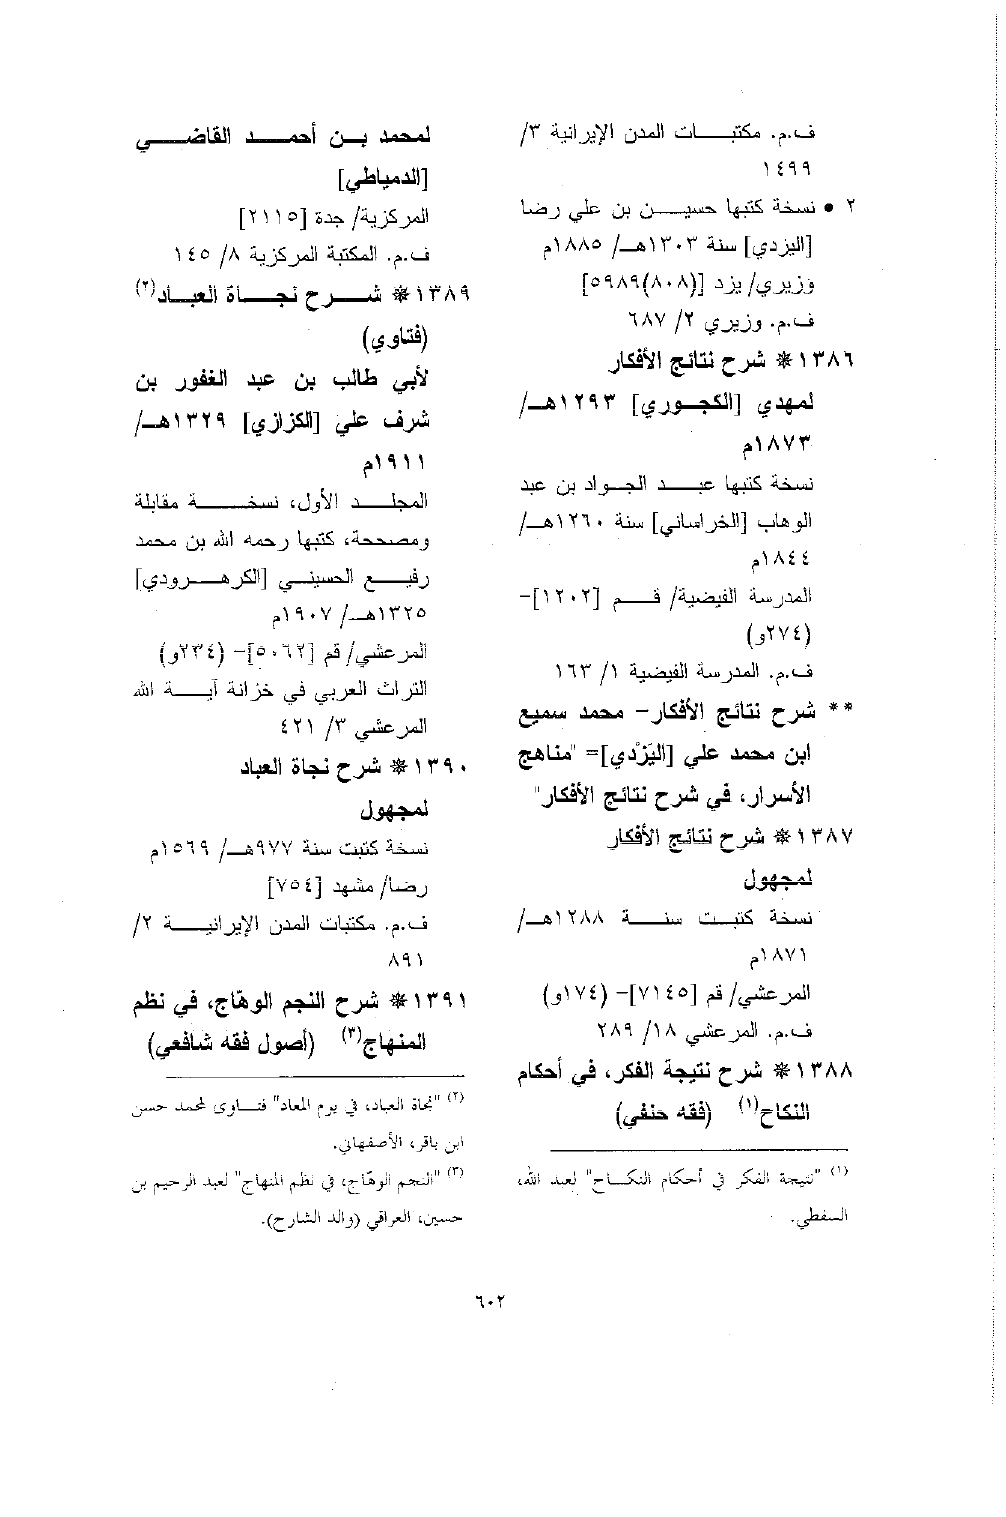 ف.م. مكتبات المدن الإيرانية ٣/
١٤٩٩
٢ • نسخة كتبها حسين بن علي رضا
[اليزدي] سنة ١٣٠٣هـ/ ١٨٨٥م
وزيري/ يزد [(٨٠٨)٥٩٨٩]
ف.م. وزيري ٢/ ٦٨٧
١٣٨٦* شرح نتائج الأفكار
لمهدي [الكجوري] ١٢٩٣هـ/
١٨٧٣م
نسخة كتبها عبد الجواد بن عبد
الوهاب [الخراساني] سنة ١٢٦٠هـ/
١٨٤٤م
المدرسة الفيضية/ قم [١٢٠٢]-
(٢٧٤و)
ف.م. المدرسة الفيضية ١/ ١٦٣
** شرح نتائج الأفكار- محمد سميع
ابن محمد علي [اليَزْدي]= "مناهج
الأسرار، في شرح نتائج الأفكار"
١٣٨٧* شرح نتائج الأفكار
لمجهول
نسخة كتبت سنة ١٢٨٨هـ/
١٨٧١م
المرعشي/ قم [٧١٤٥]- (١٧٤و)
ف.م. المرعشي ١٨/ ٢٨٩
١٣٨٨* شرح نتيجة الفكر، في أحكام
النكاح(١) (فقه حنفي)
(١) "نتيجة الفكر في أحكام النكاح" لعبد الله،
السفطي.
لمحمد بن أحمد القاضي
[الدمياطي]
المركزية/ جدة [٢١١٥]
ف.م. المكتبة المركزية ٨/ ١٤٥
١٣٨٩* شرح نجاة العباد(٢)
(فتاوي)
لأبي طالب بن عبد الغفور بن
شرف علي [الكزازي] ١٣٢٩هـ/
١٩١١م
المجلد الأول، نسخة مقابلة
ومصححة، كتبها رحمه الله بن محمد
رفيع الحسيني [الكرهرودي]
١٣٢٥هـ/ ١٩٠٧م
المرعشي/ قم [٥٠٦٢]- (٢٣٤و)
التراث العربي في خزانة آية الله
المرعشي ٣/ ٤٢١
١٣٩٠* شرح نجاة العباد
لمجهول
نسخة كتبت سنة ٩٧٧هـ/ ١٥٦٩م
رضا/ مشهد [٧٥٤]
ف.م. مكتبات المدن الإيرانية ٢/
٨٩١
١٣٩١* شرح النجم الوهّاج، في نظم
المنهاج(٣) (أصول فقه شافعي)
(٢) "نجاة العباد، في يوم المعاد" فتاوى لمحمد حسن
ابن باقر، الأصفهاني.
(٣) "النجم الوهّاج، في نظم المنهاج" لعبد الرحيم بن
حسين، العراقي (والد الشارح).
٦٠٢